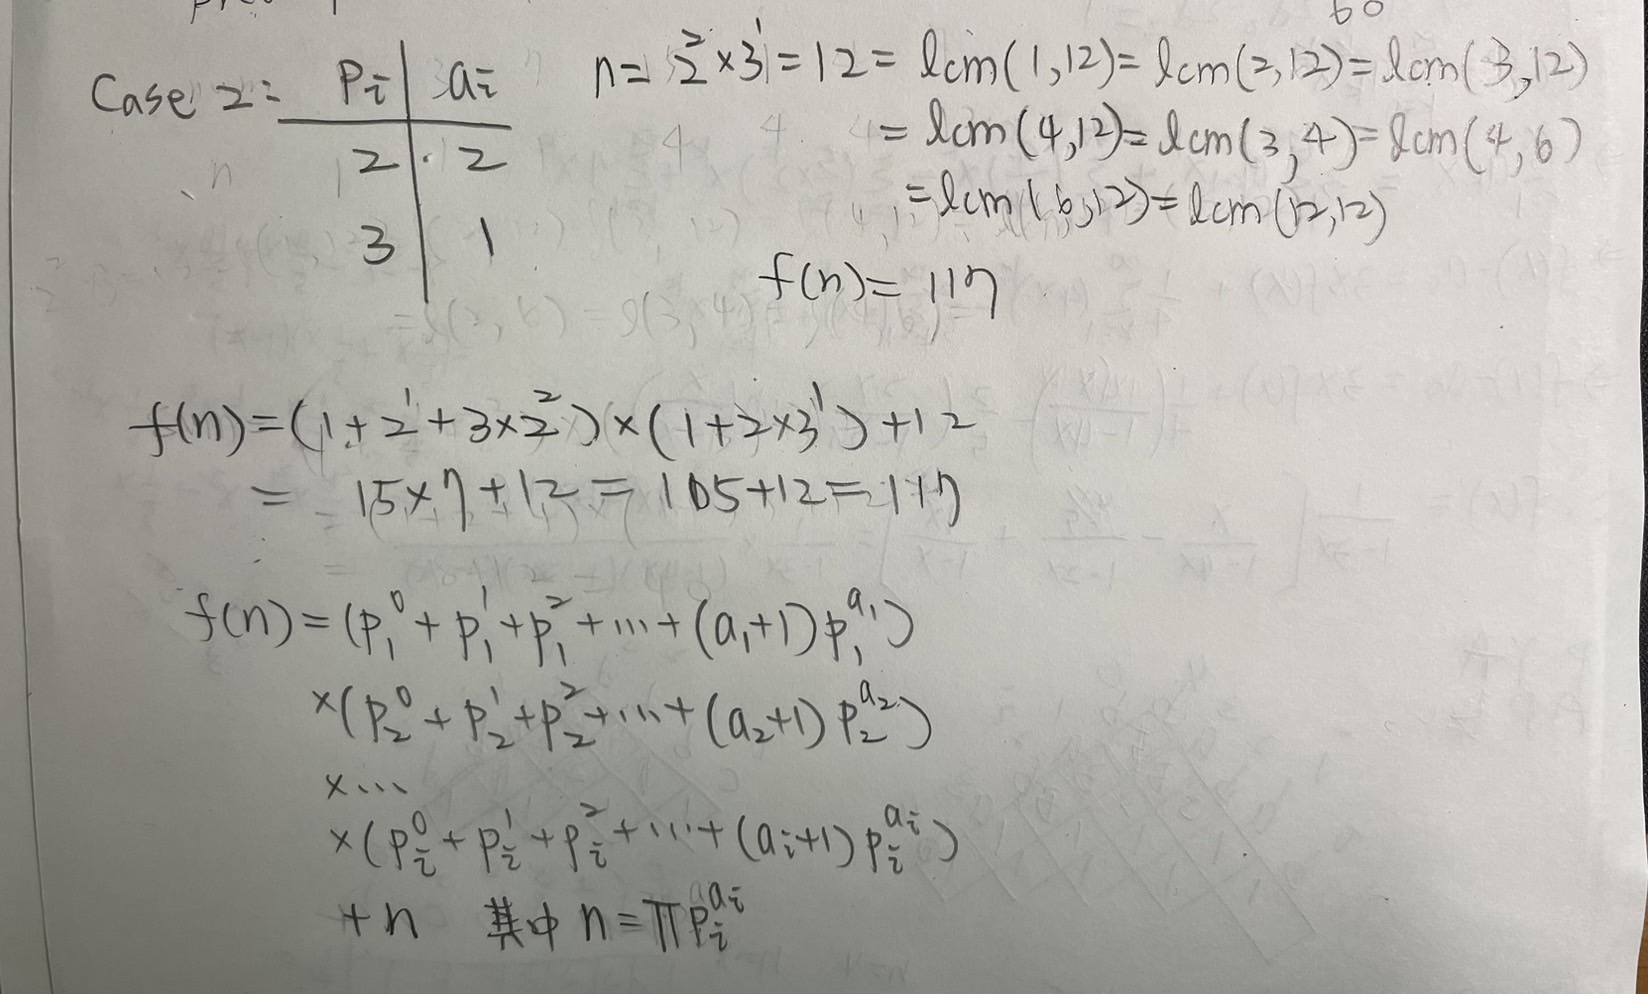 60
Case 2: p_i | a_i
2 | 2
3 | 1
n = 2^2 × 3^1 = 12 = lcm(1,12) = lcm(2,12) = lcm(3,12)
= lcm(4,12) = lcm(3,4) = lcm(4,6)
= lcm(6,12) = lcm(12,12)
f(n) = 117
f(n) = (1 + 2^1 + 3×2^2) × (1 + 2×3^1) + 12
= 15×7 + 12 = 105 + 12 = 117
f(n) = (p_1^0 + p_1^1 + p_1^2 + ... + (a_1+1) p_1^{a_1})
×(p_2^0 + p_2^1 + p_2^2 + ... + (a_2+1) p_2^{a_2})
×...
×(p_i^0 + p_i^1 + p_i^2 + ... + (a_i+1) p_i^{a_i})
+ n 其中 n = π p_i^{a_i}